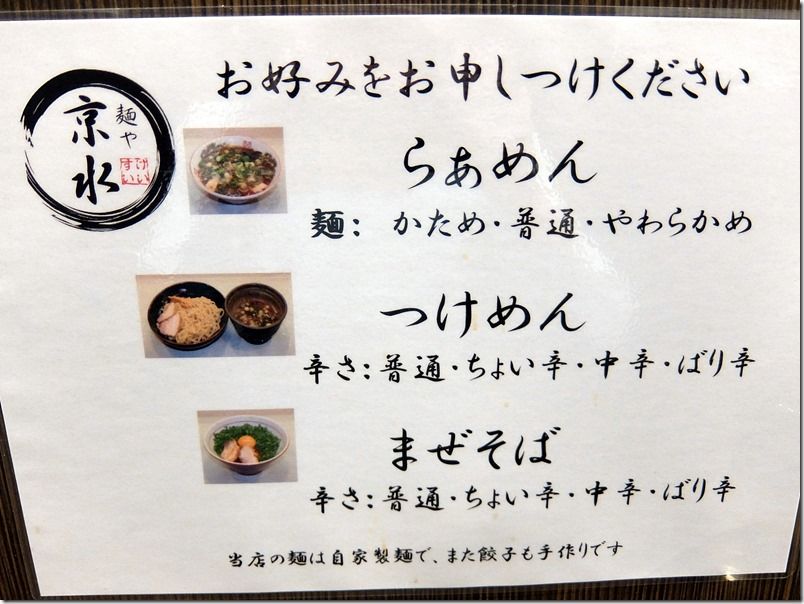 お好みをお申しつけください
麺や
京水
けい
すい
らぁめん
麺： かため・普通・やわらかめ
つけめん
辛さ：普通・ちょい辛・中辛・ばり辛
まぜそば
辛さ：普通・ちょい辛・中辛・ばり辛
当店の麺は自家製麺で、また餃子も手作りです